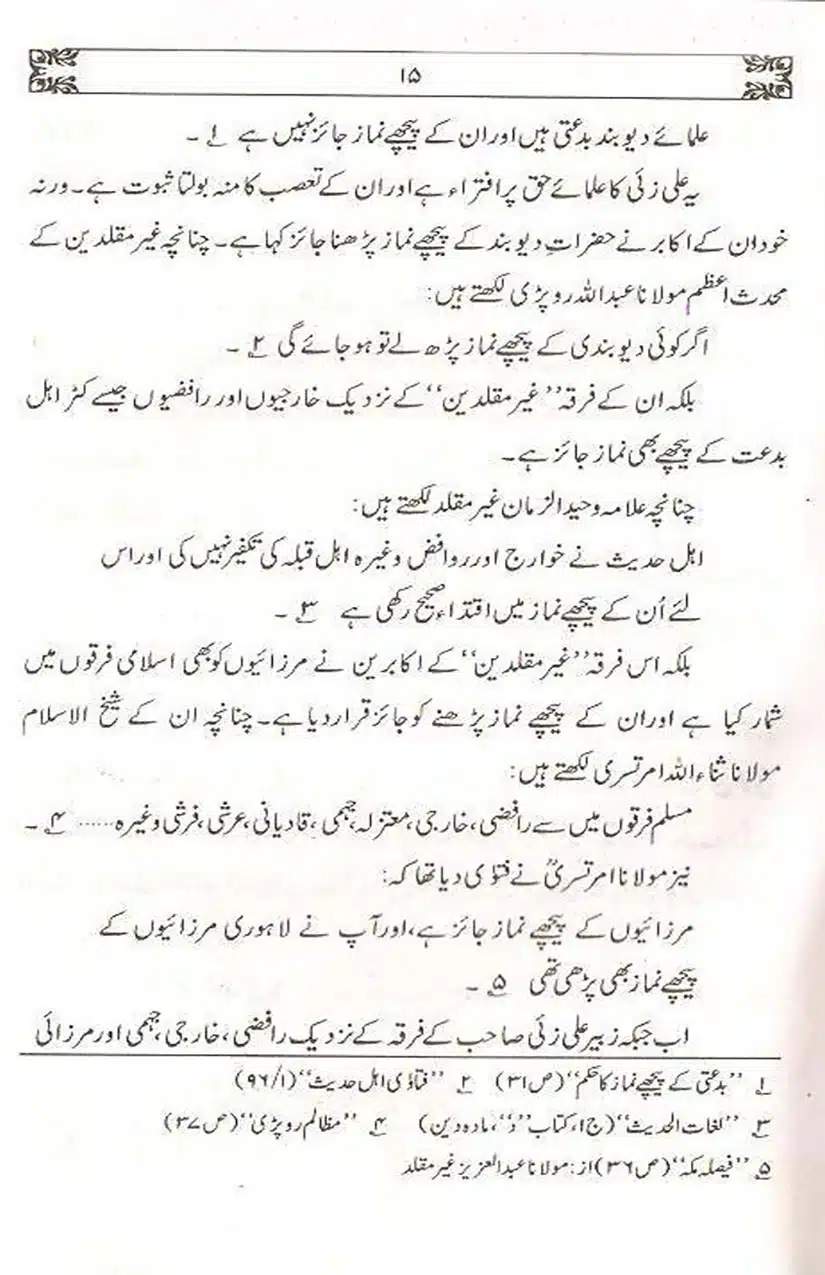 ۱۵
علمائے دیوبند بدعتی ہیں اور ان کے پیچھے نماز جائز نہیں ہے ۱؎ ۔
یہ علی زئی کا علمائے حق پر افتراء ہے اور ان کے تعصب کا منہ بولتا ثبوت ہے۔ ورنہ
خود ان کے اکابر نے حضراتِ دیوبند کے پیچھے نماز پڑھنا جائز کہا ہے۔ چنانچہ غیر مقلدین کے
محدث اعظم مولانا عبداللہ روپڑی لکھتے ہیں:
اگر کوئی دیوبندی کے پیچھے نماز پڑھ لے تو ہو جائے گی ۲؎ ۔
بلکہ ان کے فرقہ ’’غیر مقلدین‘‘ کے نزدیک خارجیوں اور رافضیوں جیسے کٹر اہل
بدعت کے پیچھے بھی نماز جائز ہے۔
چنانچہ علامہ وحید الزمان غیر مقلد لکھتے ہیں:
اہل حدیث نے خوارج اور روافض وغیرہ اہل قبلہ کی تکفیر نہیں کی اور اس
لئے اُن کے پیچھے نماز میں اقتداء صحیح رکھی ہے ۳؎ ۔
بلکہ اس فرقہ ’’غیر مقلدین‘‘ کے اکابرین نے مرزائیوں کو بھی اسلامی فرقوں میں
شمار کیا ہے اور ان کے پیچھے نماز پڑھنے کو جائز قرار دیا ہے۔ چنانچہ ان کے شیخ الاسلام
مولانا ثناء اللہ امرتسری لکھتے ہیں:
مسلم فرقوں میں سے رافضی، خارجی، معتزلہ، جہمی، قادیانی، عرشی، فرشی وغیرہ...... ۴؎ ۔
نیز مولانا امرتسریؒ نے فتوٰی دیا تھا کہ:
مرزائیوں کے پیچھے نماز جائز ہے، اور آپ نے لاہوری مرزائیوں کے
پیچھے نماز بھی پڑھی تھی ۵؎ ۔
اب جبکہ زبیر علی زئی صاحب کے فرقہ کے نزدیک رافضی، خارجی، جہمی اور مرزائی
۱؎ ’’بدعتی کے پیچھے نماز کا حکم‘‘ (ص۳۱) ۲؎ ’’فتاوٰی اہل حدیث‘‘ (۹۶/۱)
۳؎ ’’لغات الحدیث‘‘ (ج۱، کتاب ’’د‘‘، مادہ دین) ۴؎ ’’مظالم روپڑی‘‘ (ص۳۷)
۵؎ ’’فیصلہ مکہ‘‘ (ص۳۶) از: مولانا عبدالعزیز غیر مقلد